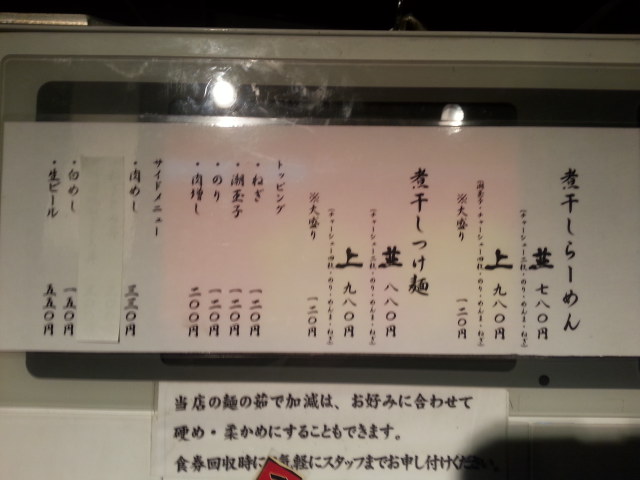 煮干しらーめん
並 七八〇円
(チャーシュー二枚・のり・めんま・ねぎ)
上 九八〇円
(潮玉子・チャーシュー四枚・のり・めんま・ねぎ)
※大盛り 一二〇円
煮干しつけ麺
並 八八〇円
(チャーシュー二枚・のり・めんま・ねぎ)
上 九八〇円
(チャーシュー四枚・のり・めんま・ねぎ)
※大盛り 一二〇円
トッピング
・ねぎ 一二〇円
・潮玉子 一二〇円
・のり 一二〇円
・肉増し 二〇〇円
サイドメニュー
・肉めし 三三〇円
・白めし 一五〇円
・生ビール 五五〇円
当店の麺の茹で加減は、お好みに合わせて
硬め・柔かめにすることもできます。
食券回収時に 気軽にスタッフまでお申し付けください。